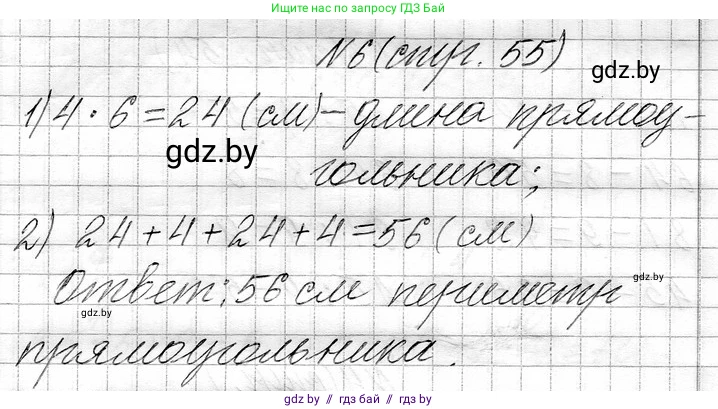 Ищите нас по запросу ГДЗ Бай
№6 (стр. 55)
gdz.by
1) 4 · 6 = 24 (см) – длина прямоу-
gdz.by
гольника;
2) 24 + 4 + 24 + 4 = 56 (см)
gdz.by
Ответ: 56 см периметр
gdz.by
прямоугольника.
gdz.by // гдз бай // гдз by